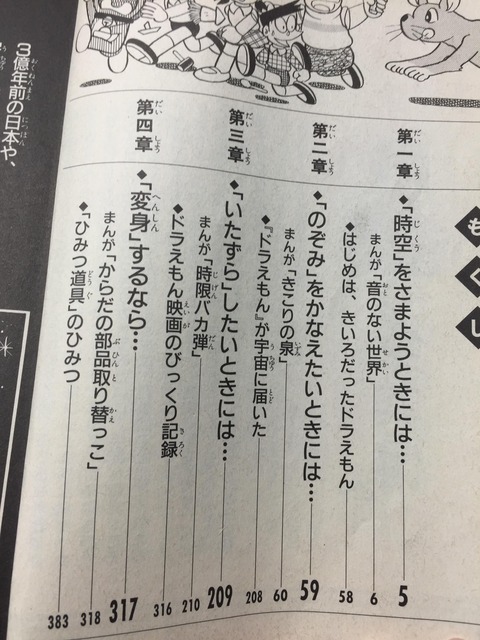 もくじ
第一章
◆「時空」をさまようときには… 5
まんが「音のない世界」 6
◆はじめは、きいろだったドラえもん 58
第二章
◆「のぞみ」をかなえたいときには… 59
まんが「きこりの泉」 60
◆『ドラえもん』が宇宙に届いた 208
第三章
◆「いたずら」したいときには… 209
まんが「時限バカ弾」 210
◆ドラえもん映画のびっくり記録 316
第四章
◆「変身」するなら… 317
まんが「からだの部品取り替っこ」 318
◆「ひみつ道具」のひみつ 383
3億年前の日本や、